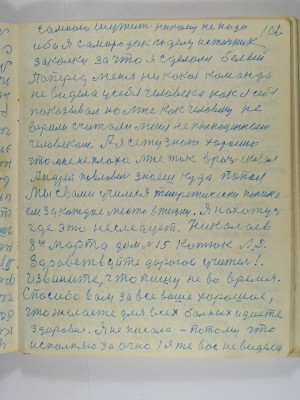 102
самкого шутит никому не надо
ибо я самородок поделу источник
заколку за что я сделали белым
поперед меня никокая команда
не видела у себя человека как я себя
показывал но мне как человеку не
верили считали меня не полноценным
человеком. А я ету знаю хорошо
что мне не плохо мне так врач сказал
Андрей Павлович знает куда попал
Мы с Вами учимся теоретически понима
ем за каждое место в жизни. Я нахожусь
где это последует. Николаев
8 Марта дом №15 Котюк Л.Д.
Здравствуйте дорогой учитель!
извините, что пишу не во время.
Спасибо вам за все ваше хорошее,
что желаете для всех больных и даете
здоровье. Я не писала - потому что
исполняю заочно! я же вас не видела